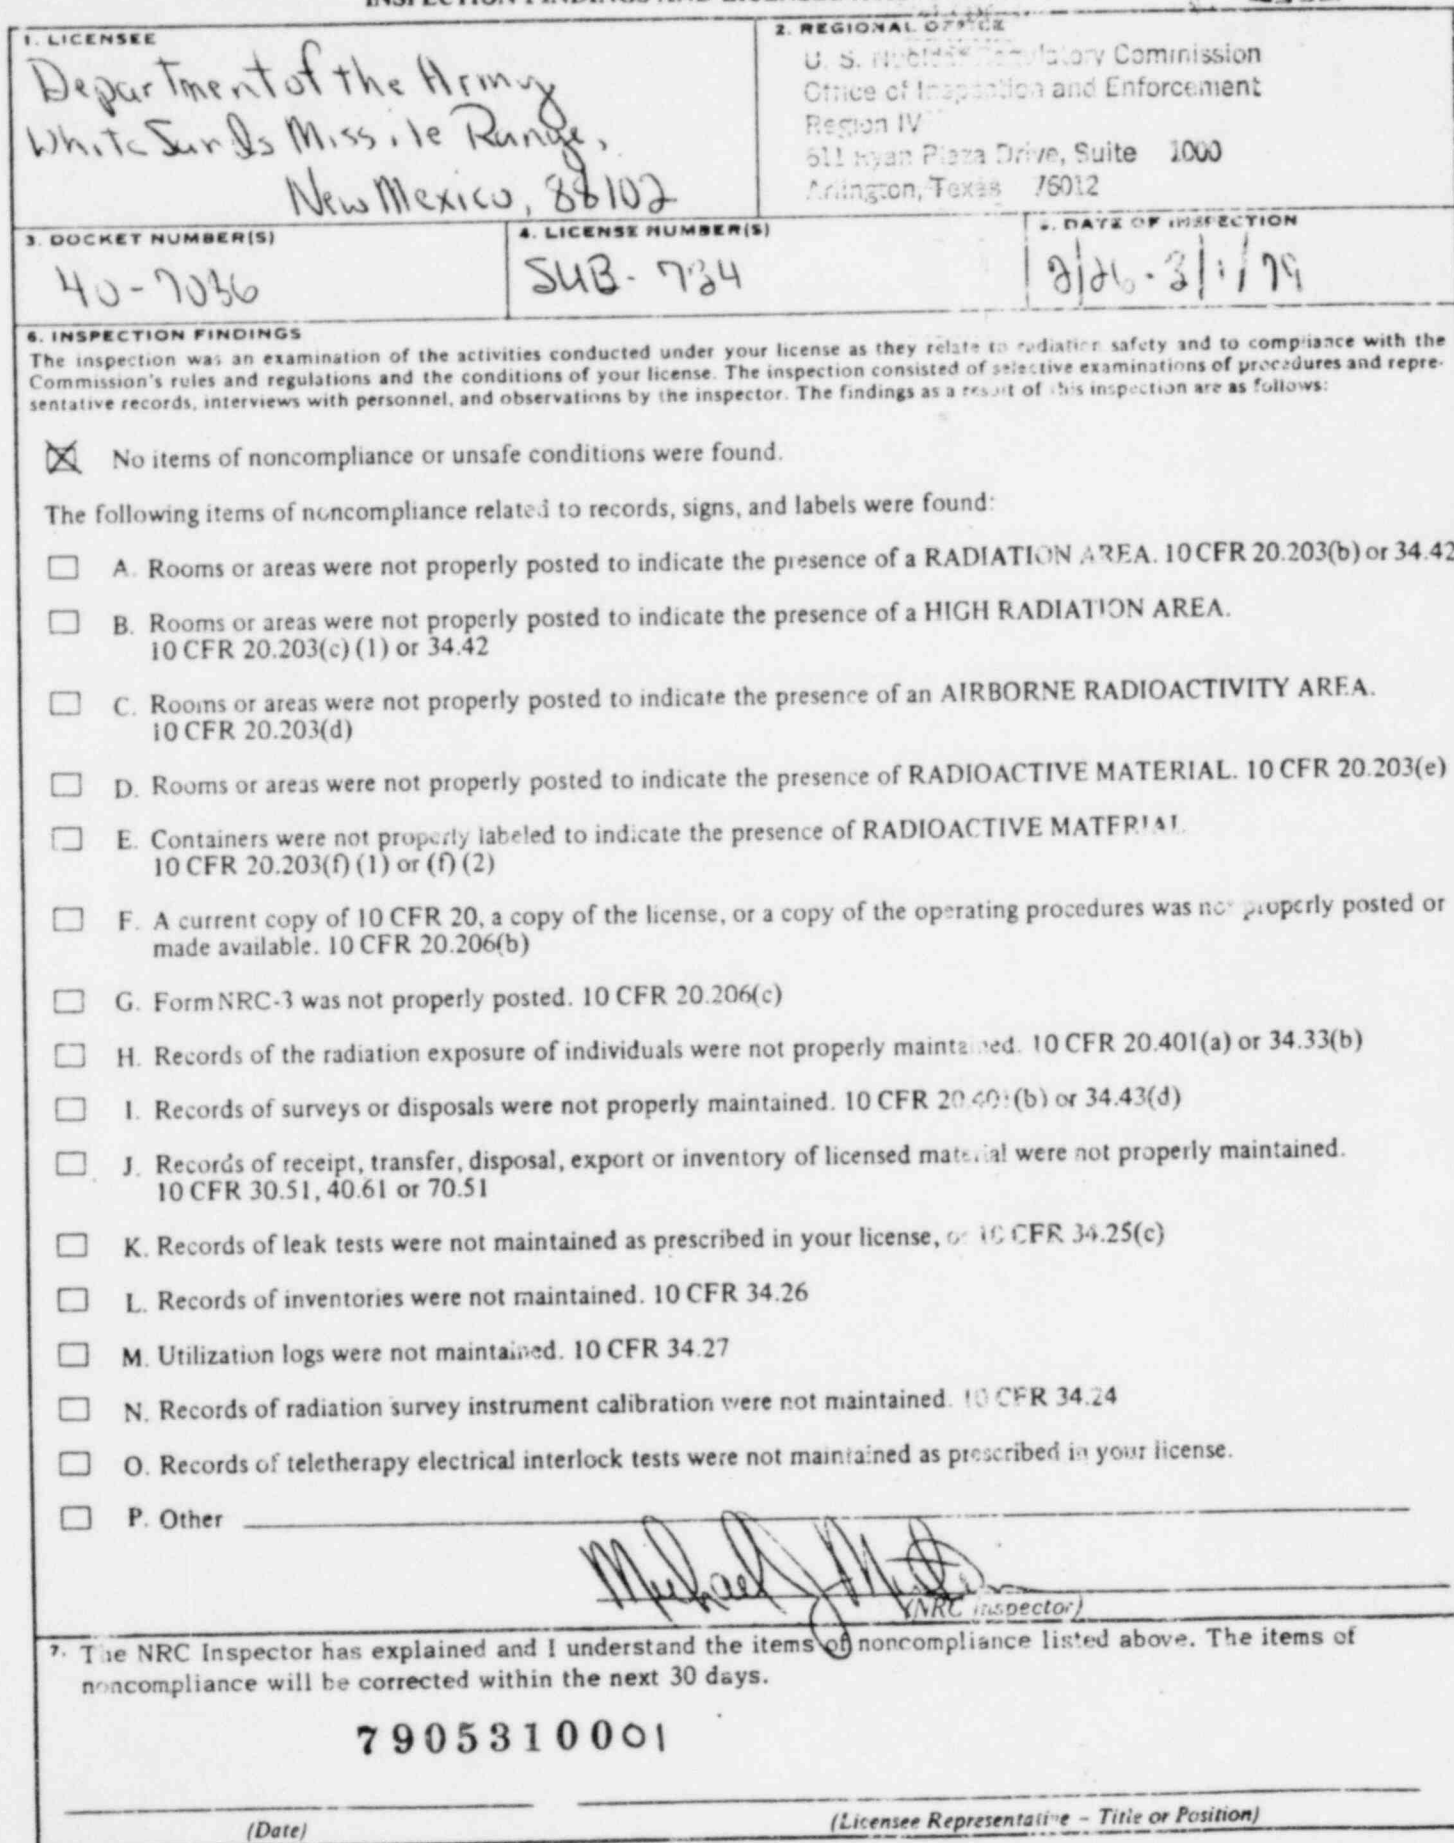 INSPECTION FINDINGS AND LICENSEE
1. LICENSEE
Department of the Army
White Sands Missile Range,
New Mexico, 88102
2. REGIONAL OFFICE
U. S. Nuclear Regulatory Commission
Office of Inspection and Enforcement
Region IV
611 Ryan Plaza Drive, Suite 1000
Arlington, Texas 76012
3. DOCKET NUMBER(S)
40-7036
4. LICENSE NUMBER(S)
SUB-734
5. DATE OF INSPECTION
2/26-3/1/79
6. INSPECTION FINDINGS
The inspection was an examination of the activities conducted under your license as they relate to radiation safety and to compliance with the
Commission's rules and regulations and the conditions of your license. The inspection consisted of selective examinations of procedures and repre-
sentative records, interviews with personnel, and observations by the inspector. The findings as a result of this inspection are as follows:
No items of noncompliance or unsafe conditions were found.
The following items of noncompliance related to records, signs, and labels were found:
A. Rooms or areas were not properly posted to indicate the presence of a RADIATION AREA. 10 CFR 20.203(b) or 34.42
B. Rooms or areas were not properly posted to indicate the presence of a HIGH RADIATION AREA.
10 CFR 20.203(c) (1) or 34.42
C. Rooms or areas were not properly posted to indicate the presence of an AIRBORNE RADIOACTIVITY AREA.
10 CFR 20.203(d)
D. Rooms or areas were not properly posted to indicate the presence of RADIOACTIVE MATERIAL. 10 CFR 20.203(e)
E. Containers were not properly labeled to indicate the presence of RADIOACTIVE MATERIAL.
10 CFR 20.203(f) (1) or (f) (2)
F. A current copy of 10 CFR 20, a copy of the license, or a copy of the operating procedures was not properly posted or
made available. 10 CFR 20.206(b)
G. Form NRC-3 was not properly posted. 10 CFR 20.206(c)
H. Records of the radiation exposure of individuals were not properly maintained. 10 CFR 20.401(a) or 34.33(b)
I. Records of surveys or disposals were not properly maintained. 10 CFR 20.401(b) or 34.43(d)
J. Records of receipt, transfer, disposal, export or inventory of licensed material were not properly maintained.
10 CFR 30.51, 40.61 or 70.51
K. Records of leak tests were not maintained as prescribed in your license, or 10 CFR 34.25(c)
L. Records of inventories were not maintained. 10 CFR 34.26
M. Utilization logs were not maintained. 10 CFR 34.27
N. Records of radiation survey instrument calibration were not maintained. 10 CFR 34.24
O. Records of teletherapy electrical interlock tests were not maintained as prescribed in your license.
P. Other
Michael J.
(NRC Inspector)
7. The NRC Inspector has explained and I understand the items of noncompliance listed above. The items of
noncompliance will be corrected within the next 30 days.
7905310001
(Date)
(Licensee Representative - Title or Position)